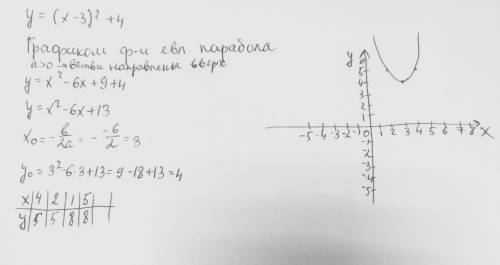 y = (x-3)² + 4
Графиком ф-и евл. парабола
a>0 → ветви направлены вверх
y = x² - 6x + 9 + 4
y = x² - 6x + 13
x₀ = -b/2a = - -6/2 = 3
y₀ = 3² - 6·3 + 13 = 9 - 18 + 13 = 4
x | 4 | 2 | 1 | 5
y | 5 | 5 | 8 | 8
y
6
5
4
3
2
1
-5 -4 -3 -2 -1 0 1 2 3 4 5 6 7 8 x
-1
-2
-3
-4
-5